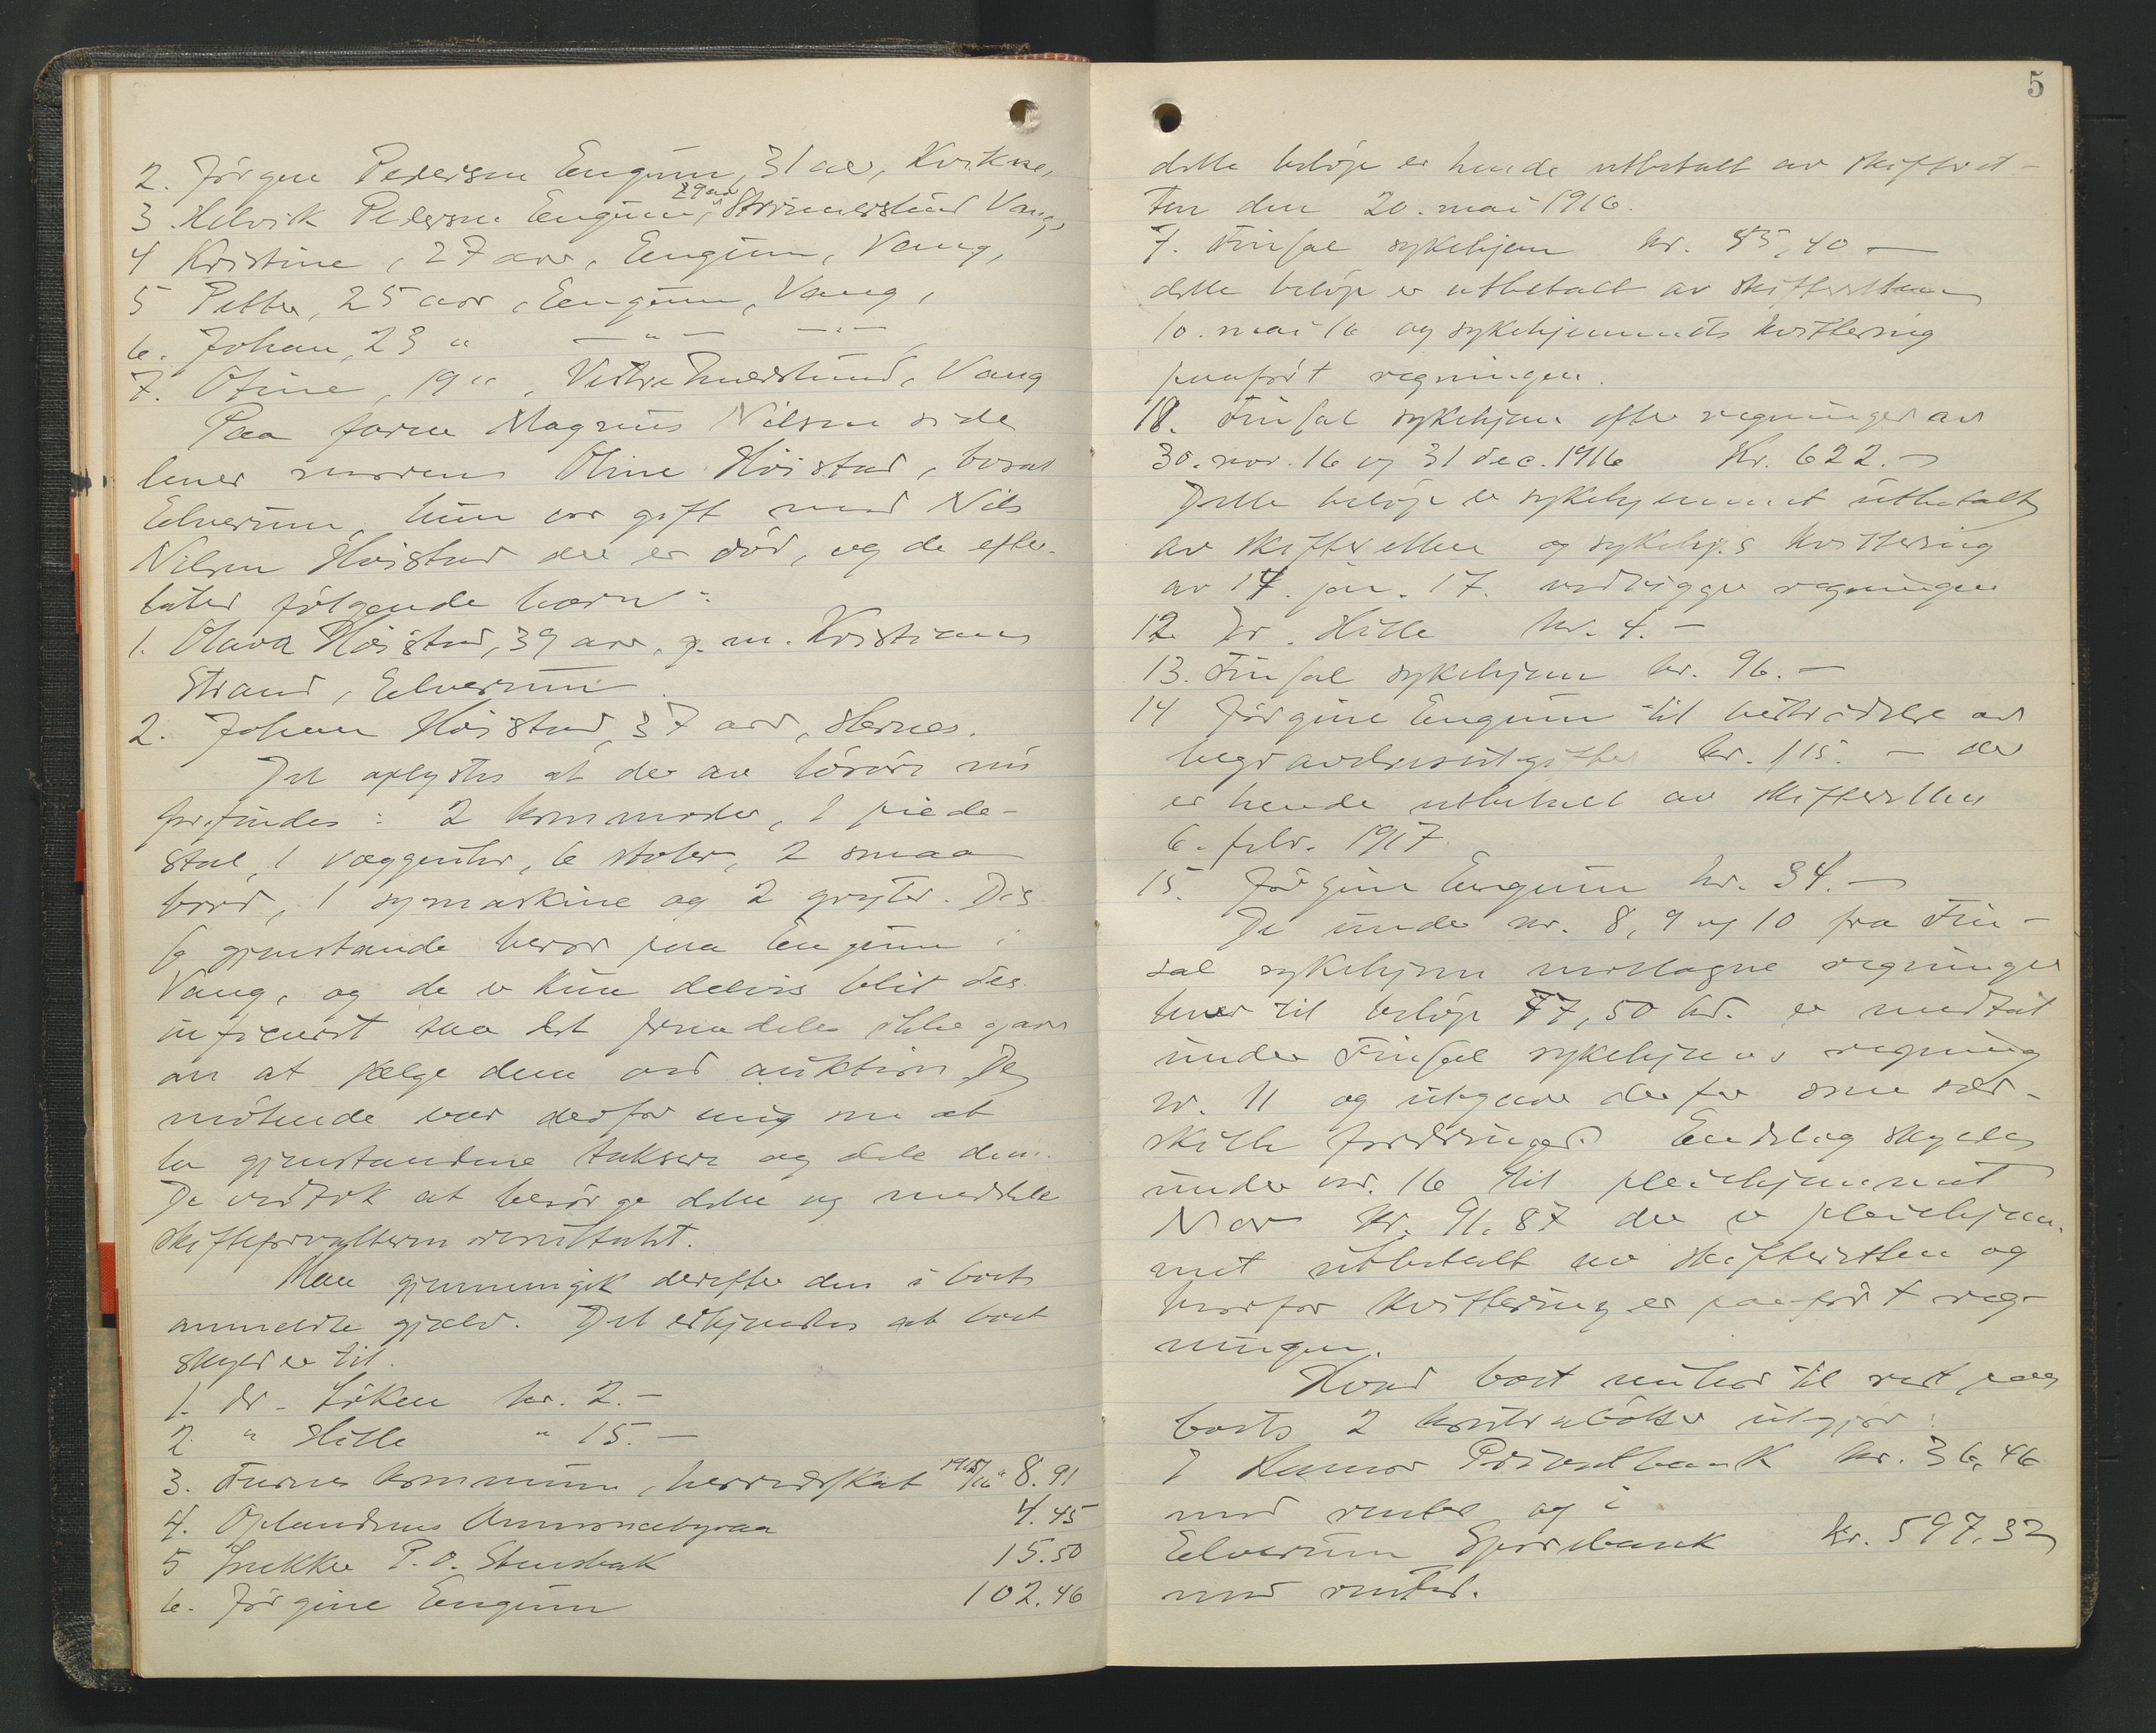 2. Jörgen Pedersen Engum, 31 aar, Kvikne,
3. Helvik Pedersen Engum, 29 aar, Strömerstuen Vang,
4 Kristine, 27 aar, Engum, Vang,
5 Petter, 25 aar, Engum, Vang,
6. Johan, 23 " — " — — " —
7. Otine, 19 ", Vestre Imerslund, Vang
Paa faren Magnus Nilsens side
lever moren Oline Höistad, bosat
Elverum, hun var gift med Nils
Nilsen Höistad der er död, og de efter-
later fölgende barn:
1. Olava Höistad, 39 aar, g. m. Kristian
Strand, Elverum.
2. Johan Höistad, 37 aar, Hernes.
Det oplystes at der av lösöre nu
forefindes: 2 kommoder, 1 piede-
stal, 1 væggenhr, 6 stoler, 2 smaa
bord, 1 symaskine og 2 gryter. Dis-
se gjenstande beror paa Engum i
Vang, og de er kun delvis blit des-
inficert saa det fremdeles ikke gaar
an at sælge dem ved auktion. De
mötende var derfor enig om at
la gjenstandene taksere og dele dem.
De vedtok at besörge dette og meddele
skifteforvalteren resultatet.
Man gjennemgik derefter den i boet
anmeldte gjæld. Det erkjendtes at boet
skylder til.
1. dr. Löken kr. 2.—
2. " Hille " 15.—
3. Furnes kommune, herredskat 1915/16 " 8.91
4. Oplandenes Annoncebyraa 4.45
5 Snekker P. O. Stensbak 15.50
6. Jörgine Engum 102.46
5
dette belöp er hende utbetalt av skifteret-
ten den 20. mai 1916.
7. Finsal sykehjem kr. 55,40 —
dette belöp er utbetalt av skifteretten
10. mai 16 og sykehjemmets kvittering
paafört regningen.
18. Finsal sykehjem efter regninger av
30. nov. 16 og 31 dec. 1916 Kr. 622.—
Dette belöp er sykehjemmet utbetalt
av skifteretten og sykehj.s kvittering
av 17. jan. 17. vedligger regningen
12 Dr. Hille kr. 4.—
13. Finsal sykehjem kr. 96.—
14 Jörgine Engum til bestridelse av
begravelsesutgifter kr. 115.— der
er hende utbetalt av skifteretten
6. febr. 1917.
15. Jörgine Engum kr. 34.—
De under nr. 8, 9 og 10 fra Fin-
sal sykehjem mottagne regninger
hver til belöp 77,50 kr. er medtat
under Finsal sykehjems regning
nr. 11 og utgaar derfor som sær-
skilte fordringer. Endelig skyldes
under nr. 16 til pleiehjemmet
Nor kr. 91,87 der er pleiehjem-
met utbetalt av skifteretten og
hvorfor kvittering er paafört reg-
ningen.
Hvad boet nu har til rest paa
boets 2 kontraböker utgjör:
I Hamar Privatbank kr. 36,46
med renter og i
Elverum Sparebank kr. 597.32
med renter.